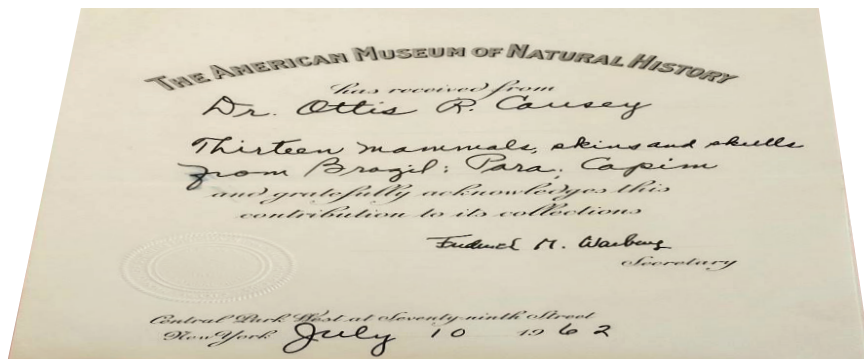 THE AMERICAN MUSEUM OF NATURAL HISTORY
has received from
Dr. Ottis R. Causey
Thirteen mammals, skins and skulls
from Brazil: Para: Capim
and gratefully acknowledges this
contribution to its collections
Frederick M. Warburg
Secretary
Central Park West at Seventy-ninth Street
New York July 10 1962